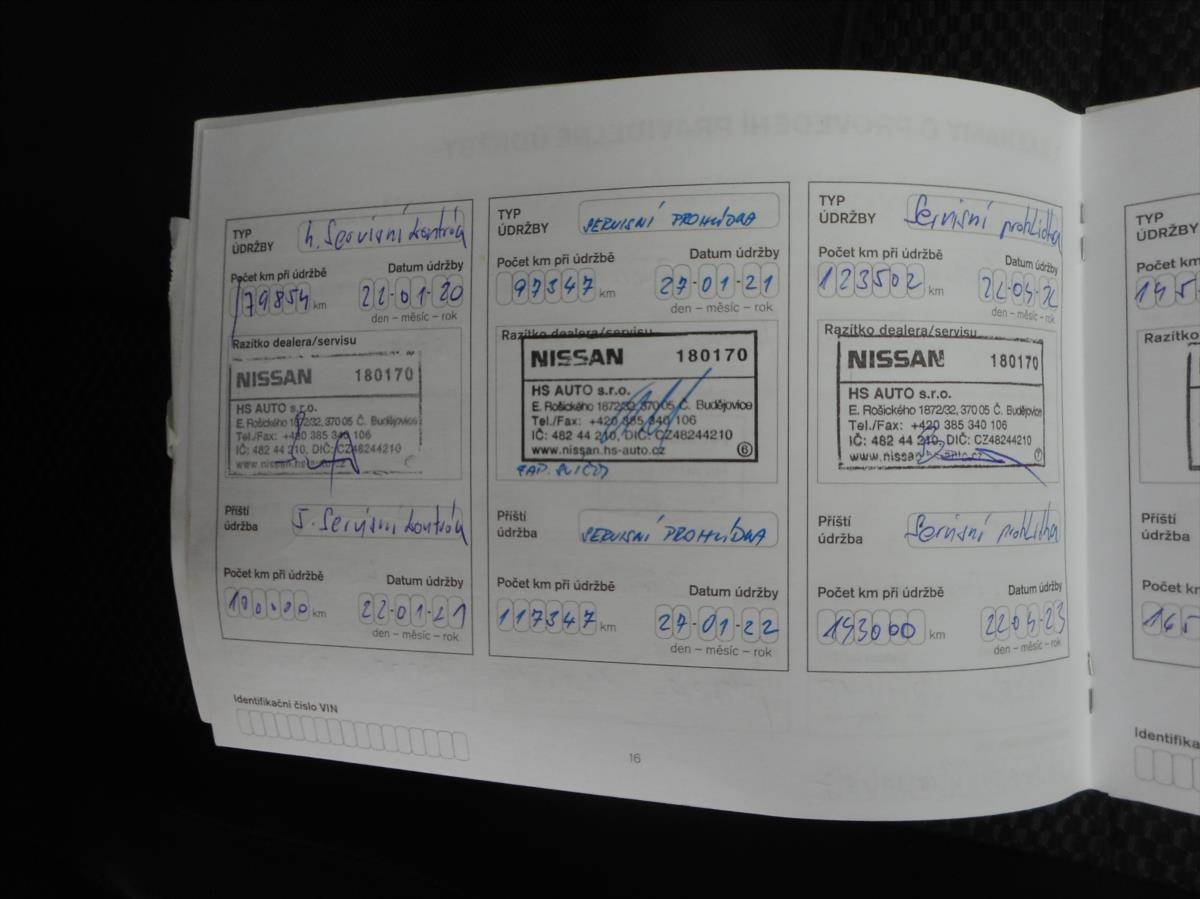 TYP ÚDRŽBY
4. Servisní kontrola
Počet km při údržbě
Datum údržby
79854 km
22-01-20
den – měsíc – rok
Razítko dealera/servisu
NISSAN 180170
HS AUTO s.r.o.
E. Rošického 1872/32, 370 05 Č. Budějovice
Tel./Fax: +420 385 340 106
IČ: 482 44 210, DIČ: CZ48244210
www.nissan.hs-auto.cz
Příští údržba
5. Servisní kontrola
Počet km při údržbě
Datum údržby
100000 km
22-01-21
den – měsíc – rok
Identifikační číslo VIN
TYP ÚDRŽBY
SERVISNÍ PROHLÍDKA
Počet km při údržbě
Datum údržby
97347 km
27-01-21
den – měsíc – rok
Razítko dealera/servisu
NISSAN 180170
HS AUTO s.r.o.
E. Rošického 1872/32, 370 05 Č. Budějovice
Tel./Fax: +420 385 340 106
IČ: 482 44 210, DIČ: CZ48244210
www.nissan.hs-auto.cz 6
Příští údržba
SERVISNÍ PROHLÍDKA
Počet km při údržbě
Datum údržby
117347 km
27-01-22
den – měsíc – rok
16
TYP ÚDRŽBY
Servisní prohlídka
Počet km při údržbě
Datum údržby
123502 km
22-04-22
den – měsíc – rok
Razítko dealera/servisu
NISSAN 180170
HS AUTO s.r.o.
E. Rošického 1872/32, 370 05 Č. Budějovice
Tel./Fax: +420 385 340 106
IČ: 482 44 210, DIČ: CZ48244210
www.nissan.hs-auto.cz 7
Příští údržba
Servisní prohlídka
Počet km při údržbě
Datum údržby
143000 km
22-04-23
den – měsíc – rok
TYP ÚDRŽBY
Počet km
Razítko
Příští údržba
Počet km
165